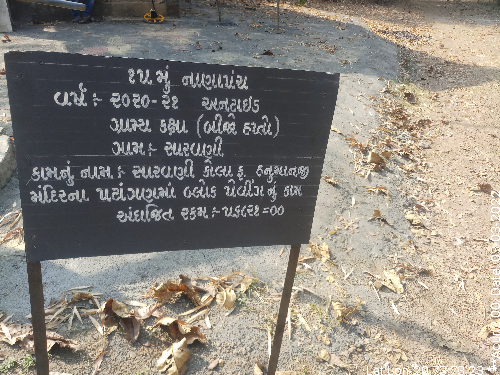 ૧૫ મું નાણાપંચ
વર્ષ :- ૨૦૨૦-૨૧ અનટાઇડ
ગ્રામ્ય કક્ષા (બીજો હપ્તો)
ગામ :- સારવણી
કામનું નામ :- સારવણી કોલા ફ. હનુમાનજી
મંદિરના પટાંગણમાં બ્લોક પેવીંગનું કામ
અંદાજિત રકમ :- ૫૬૮૨૧=૦૦